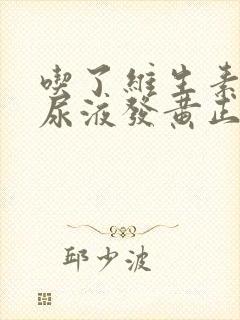 喫了維生素
尿液發黄正
邱少波